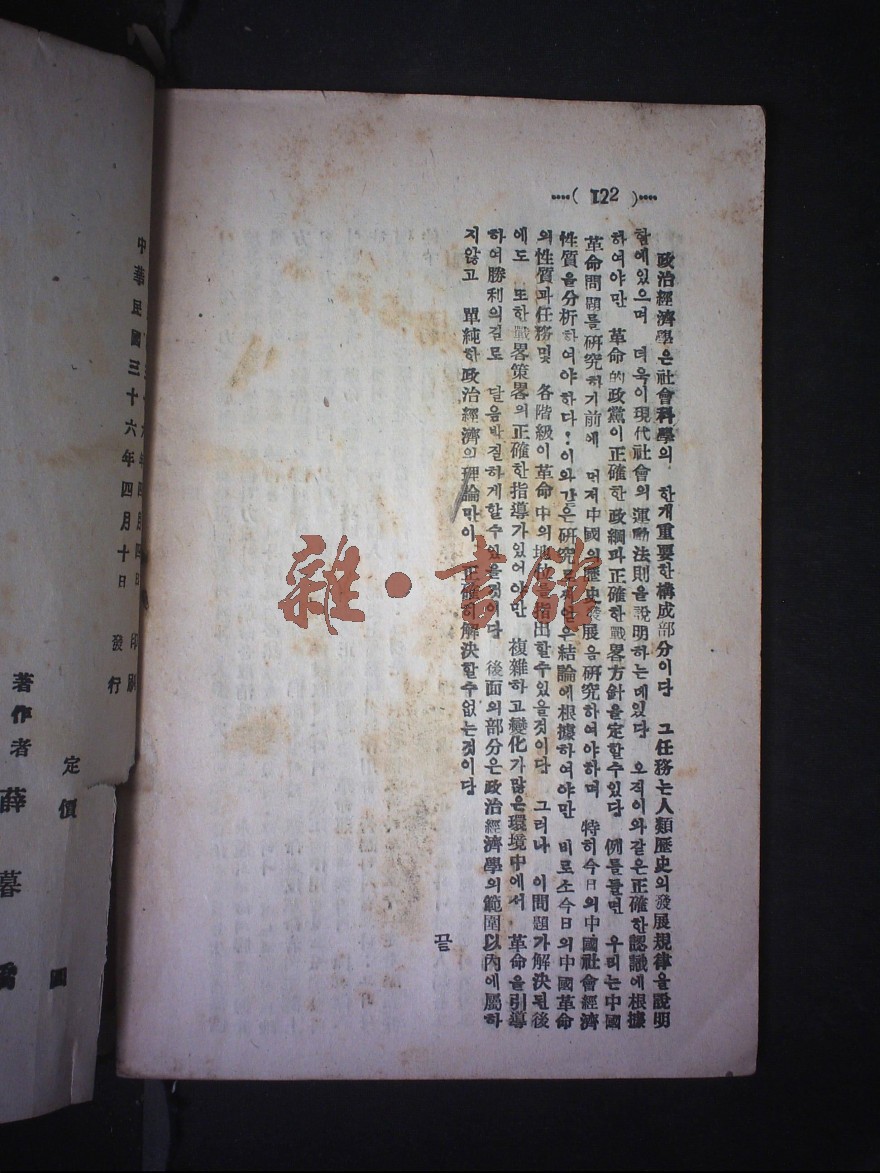 ....( 122 )....
政治經濟學은社會科學의 한개重要한構成部分이다 그任務는人類歷史의發展規律을說明
함에있으며 더욱이現代社會의運動法則을說明하는데있다 오직이와같은正確한認識에根據
하여야만 革命的政黨이正確한政綱과正確한戰畧方針을定할수있다 例를들면 우리는中國
革命問題를硏究하기前에 먼저中國의歷史發展을硏究하여야하며 特히今日의中國社會經濟
性質을分析하여야하다! 이와같은硏究로써얻으結論에根據하여야만 비로소今日의中國革命
의性質과任務및 各階級이革命中의地位를指出할수있을것이다 그러나 이問題가解決된後
에도 또한戰畧策畧의正確한指導가있어야만 複雜하고變化가많은環境中에서 革命을引導
하여勝利의길로 달음박질하게할수있을것이다 後面의部分은政治經濟學의範圍以內에屬하
지않고 單純하政治經濟의理論만이 正確히解決할수없는것이다
끝
中華民國三十六年四月十日 發行
印刷
定價 圓
著作者 薛暮橋
雜·書館